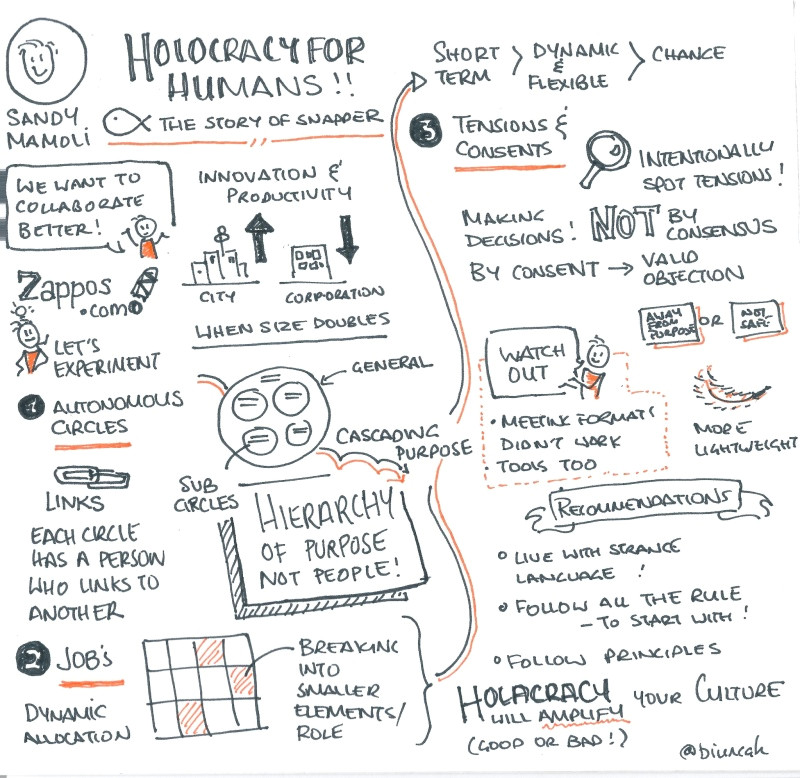 HOLOCRACY FOR
HUMANS!!
SANDY
MAMOLI
THE STORY OF SNAPPER
WE WANT TO
COLLABORATE
BETTER!
INNOVATION &
PRODUCTIVITY
CITY
CORPORATION
WHEN SIZE DOUBLES
Zappos
.com
LET'S
EXPERIMENT
1 AUTONOMOUS
CIRCLES
GENERAL
SUB
CIRCLES
CASCADING
PURPOSE
LINKS
EACH CIRCLE
HAS A PERSON
WHO LINKS TO
ANOTHER
HIERARCHY
OF PURPOSE
NOT PEOPLE!
2 JOB'S
DYNAMIC
ALLOCATION
BREAKING
INTO
SMALLER
ELEMENTS/
ROLE
SHORT
TERM
DYNAMIC
&
FLEXIBLE
CHANGE
3 TENSIONS &
CONSENTS
INTENTIONALLY
SPOT TENSIONS!
MAKING
DECISIONS!
NOT BY
CONSENSUS
BY CONSENT → VALID
OBJECTION
AWAY
FROM
PURPOSE
OR
NOT
SAFE
WATCH
OUT
• MEETING FORMATS
DIDN'T WORK
• TOOLS TOO
MORE
LIGHTWEIGHT
RECOMMENDATIONS
• LIVE WITH STRANGE
LANGUAGE!
• FOLLOW ALL THE RULE
– TO START WITH!
• FOLLOW PRINCIPLES
HOLACRACY
WILL AMPLIFY
YOUR CULTURE
(GOOD OR BAD!)